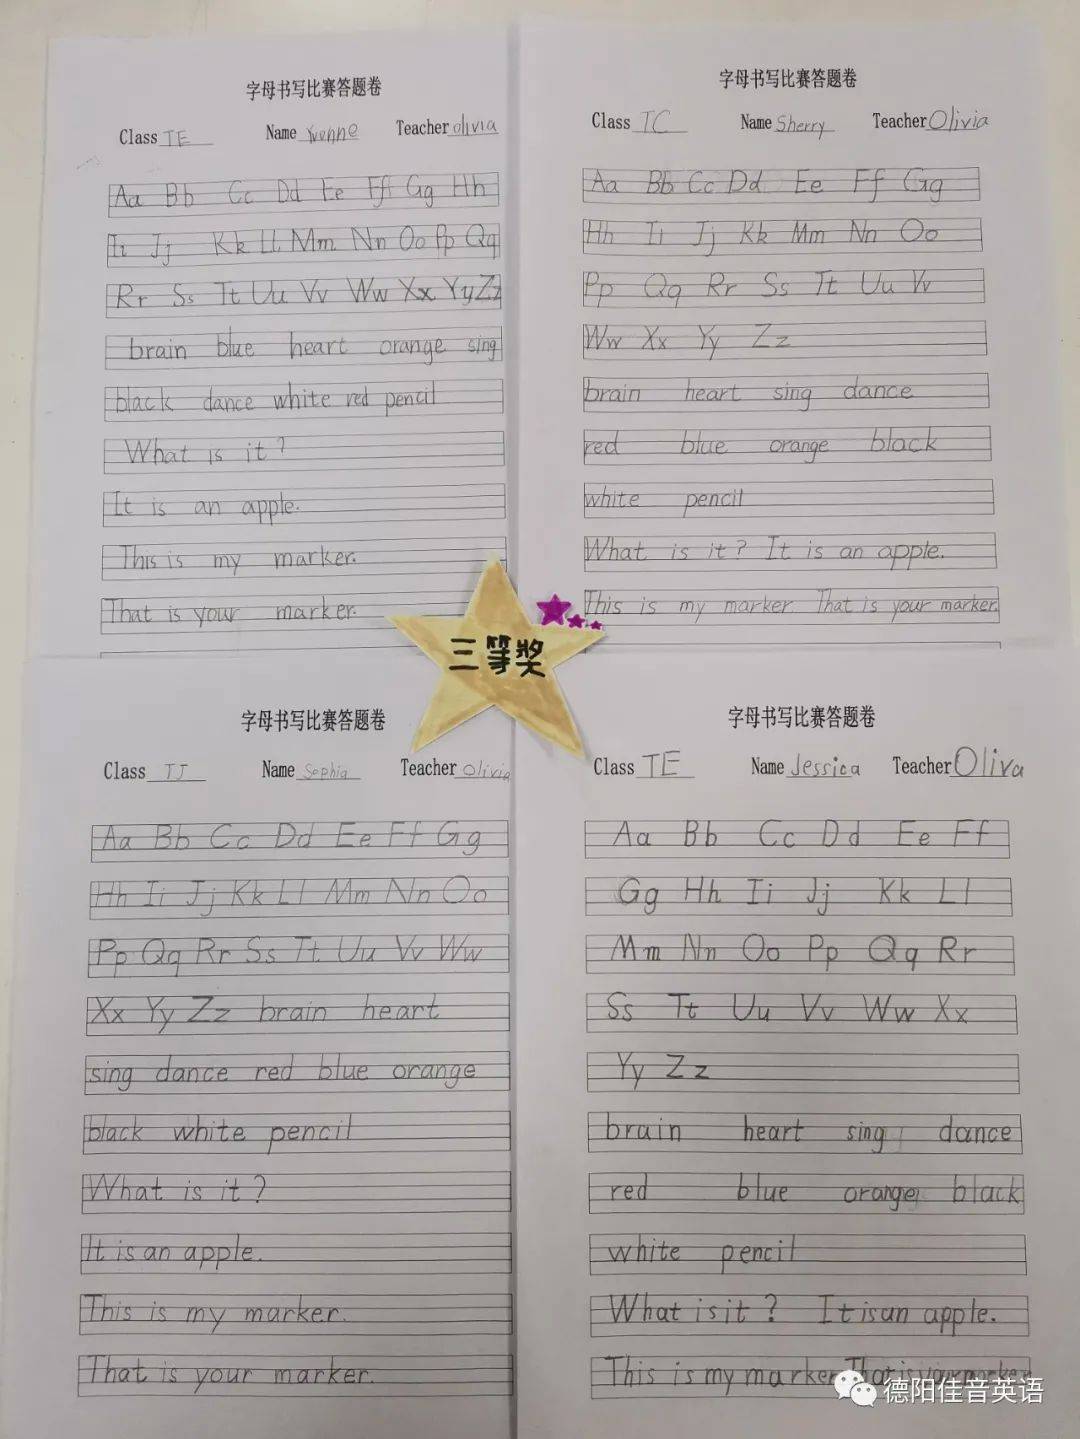 字母书写比赛答题卷
Class TE Name Yvonne Teacher olivia
Aa Bb Cc Dd Ee Ff Gg Hh
Ii Jj Kk Ll Mm Nn Oo Pp Qq
Rr Ss Tt Uu Vv Ww Xx Yy Zz
brain blue heart orange sing
black dance white red pencil
What is it?
It is an apple.
This is my marker.
That is your marker.
字母书写比赛答题卷
Class TC Name Sherry Teacher Olivia
Aa Bb Cc Dd Ee Ff Gg
Hh Ii Jj Kk Mm Nn Oo
Pp Qq Rr Ss Tt Uu Vv
Ww Xx Yy Zz
brain heart sing dance
red blue orange black
white pencil
What is it? It is an apple.
This is my marker That is your marker.
三等奖
字母书写比赛答题卷
Class TJ Name Sophia Teacher Olivia
Aa Bb Cc Dd Ee Ff Gg
Hh Ii Jj Kk Ll Mm Nn Oo
Pp Qq Rr Ss Tt Uu Vv Ww
Xx Yy Zz brain heart
sing dance red blue orange
black white pencil
What is it?
It is an apple.
This is my marker.
That is your marker.
字母书写比赛答题卷
Class TE Name Jessica Teacher Oliva
Aa Bb Cc Dd Ee Ff
Gg Hh Ii Jj Kk Ll
Mm Nn Oo Pp Qq Rr
Ss Tt Uu Vv Ww Xx
Yy Zz
brain heart sing dance
red blue orange black
white pencil
What is it? It is an apple.
This is my marker That is your marker
德阳佳音英语